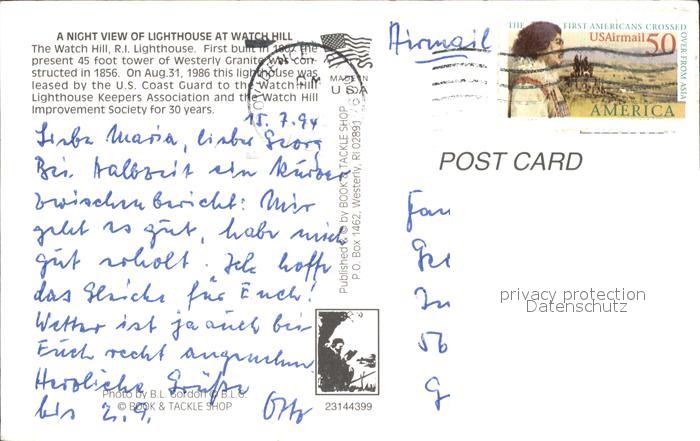 A NIGHT VIEW OF LIGHTHOUSE AT WATCH HILL
The Watch Hill, R.I. Lighthouse. First built in 1802 the
present 45 foot tower of Westerly Granite was con-
structed in 1856. On Aug. 31, 1986 this lighthouse was
leased by the U.S. Coast Guard to the Watch Hill
Lighthouse Keepers Association and the Watch Hill
Improvement Society for 30 years.
MADE IN
USA
Airmail
THE FIRST AMERICANS CROSSED
OVER FROM ASIA
USAirmail 50
AMÉRICA
POST CARD
15.7.94
Liebe Maria, lieber Georg
Bei Halbzeit ein kurzer
Zwischenbericht: Mir
geht es gut, habe mich
gut erholt. Ich hoffe
das Gleiche für Euch!
Wetter ist ja auch bei
Euch recht angenehm
Herzliche Grüße
bis 2.9.
Published & © by BOOK & TACKLE SHOP
P.O. Box 1462, Westerly, RI 02891
Photo by B.L. Gordon © B.L.G.
© BOOK & TACKLE SHOP
23144399
privacy protection
Datenschutz
56